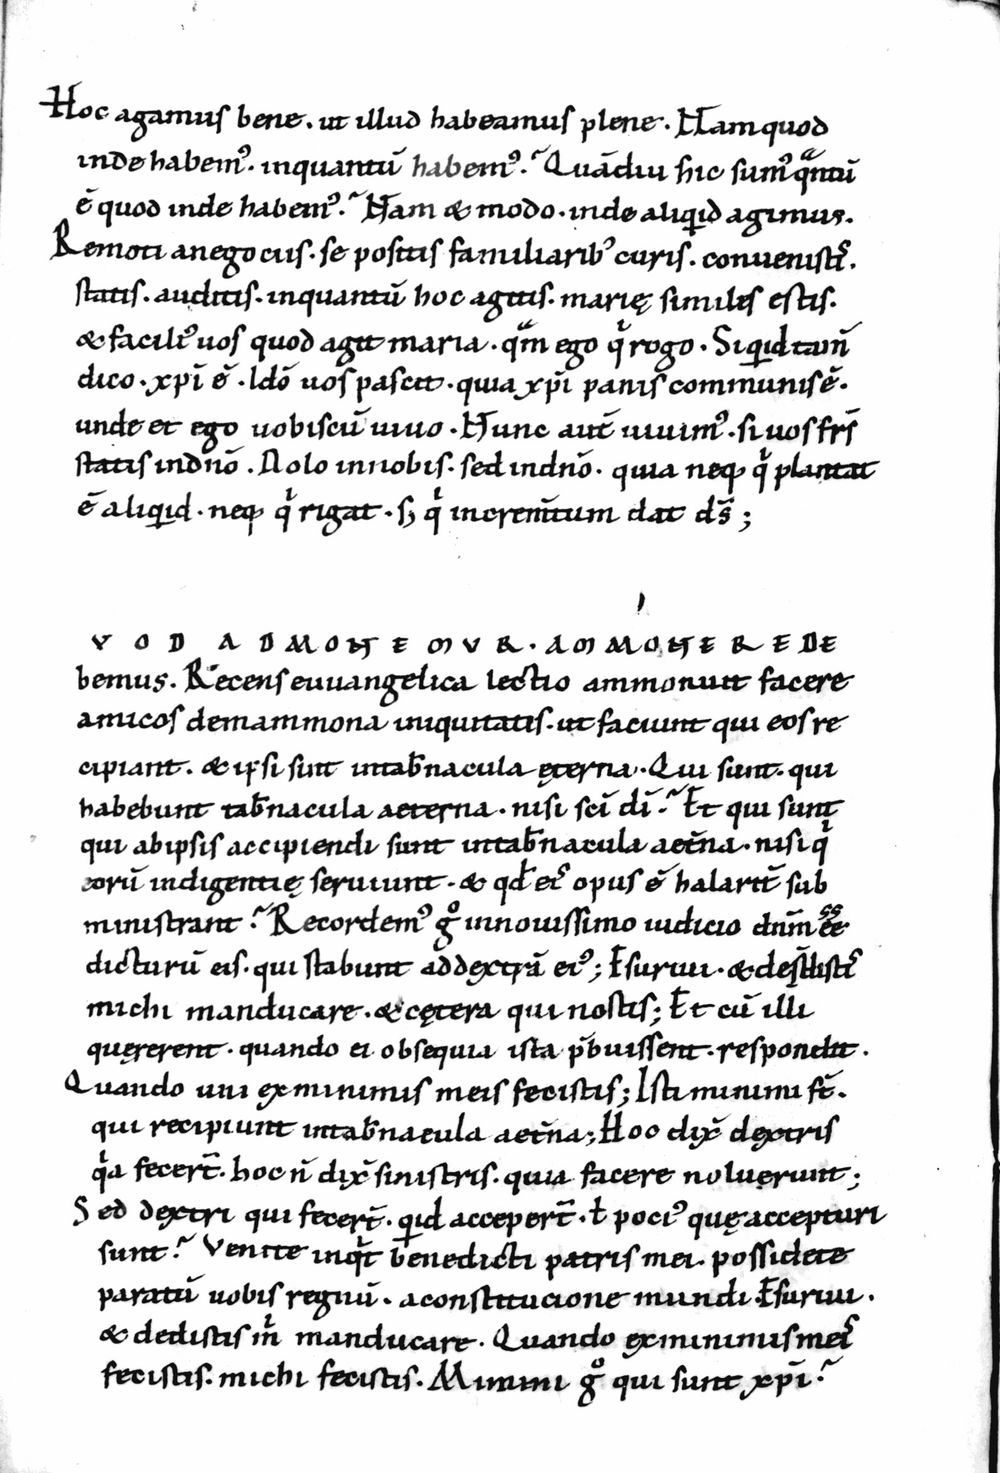 Hoc agamus bene. ut illud habeamus plene. Nam quod
inde habem᾽. inquantū habem᾽.̃ Quādiu hic sum᾽ qͣntū
ē quod inde habem᾽.̃ Nam & modo. inde aliquid agimus.
Remoti anegociis. se positis familiarib᾽ curis. conuenistiˢ.
statis. auditis. inquantū hoc agitis. marię similes estis.
& facili᾽ uos quod agit maria. qͫm ego qͥ rogo. Siquid tam̄
dico. xpi̅ ē. Idō uos pascit. quia xpi̅ panis communis ē.
unde et ego uobiscū uiuo. Nunc aut̄ uiuim᾽. si uos frs̄
statis indnō. Nolo innobis. sed indnō. quia neq; qͥ plantat
ē aliquid. neq; qͥ rigat. s; qͥ increm̄tum dat ds̄;
VOD ADMONEMUR. AMMONERE DE
bemus. Recens euuangelica lectio ammonuit facere
amicos demammona iniquitatis. ut faciunt qui eos re
cipiant. & ipsi sint intab̄nacula ęterna. Qui sunt. qui
habebunt tab̄nacula aeterna. nisi sci̅ di̅.̃ Et qui sunt
qui abipsis accipiendi sunt intab̄nacula aet̄na. nisi qͥ
eorū indigentię seruiunt. & qd̄ eiˢ opus ē halarit̄ sub
ministrant.̃ Recordem᾽ gͦ innouissimo iudicio dnm̄ ee̅
dicturū eis. qui stabunt addextrā ei᾽; Esuriui. & dedistiˢ
michi manducare. & cętera qui nostis; Et cū illi
quęrerent. quando ei obsequia ista p̄buissent. respondit.
Quando uni exminimis meis fecistis; Isti minimi st̄.
qui recipiunt intab̄nacula aet̄na; Hoc dix̄ dextris
qͥa fecer̄t. hoc n̄ dix̄ sinistris. quia facere noluerunt;
Sed dextri qui fecer̄t. quid acceper̄t. ł poci᾽ quę accepturi
sunt.̃ Venite inqͥt benedicti patris mei. possidete
paratū uobis regnū. aconstitucione mundi. Esuriui.
& dedistis mͥ manducare. Quando exminimis meiˢ
fecistis. michi fecistis. Minimi gͦ qui sunt xpi̅.̃